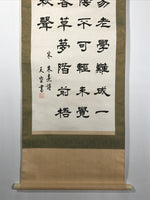 易老學難成一
陰不可輕未覺
春草夢階前梧
秋聲
宋 朱熹詩
書